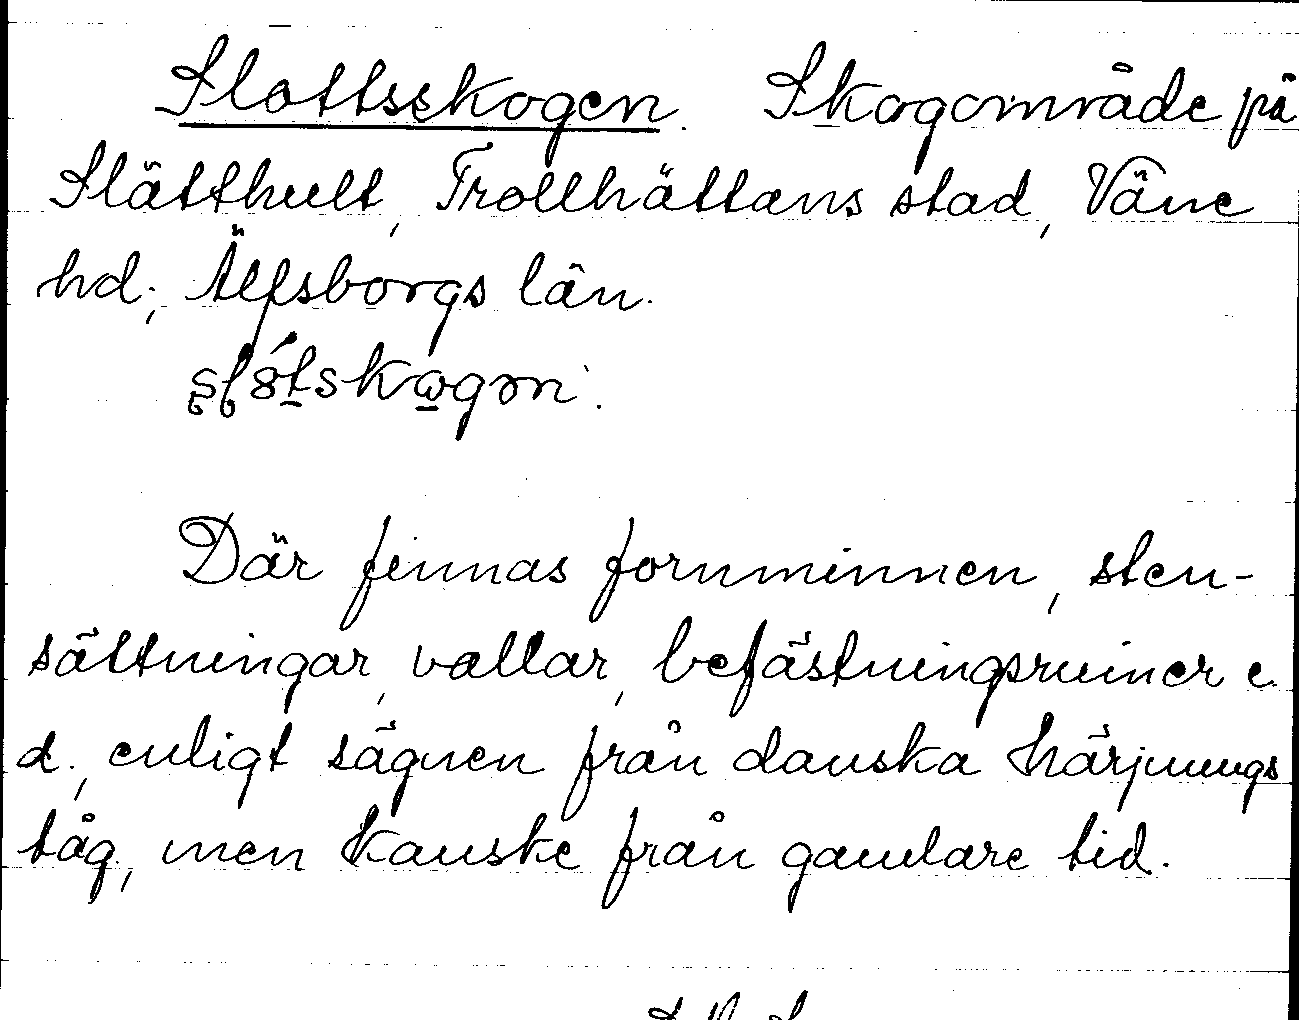 Slottsskogen. Skogområde på
Slätthult, Trollhättans stad, Väne
hd; Älfsborgs län.
Där finnas fornminnen, sten-
sättningar, vallar, befästningsruiner e.
d., enligt sägnen från danska härjnings
tåg, men kanske från gamlare tid.